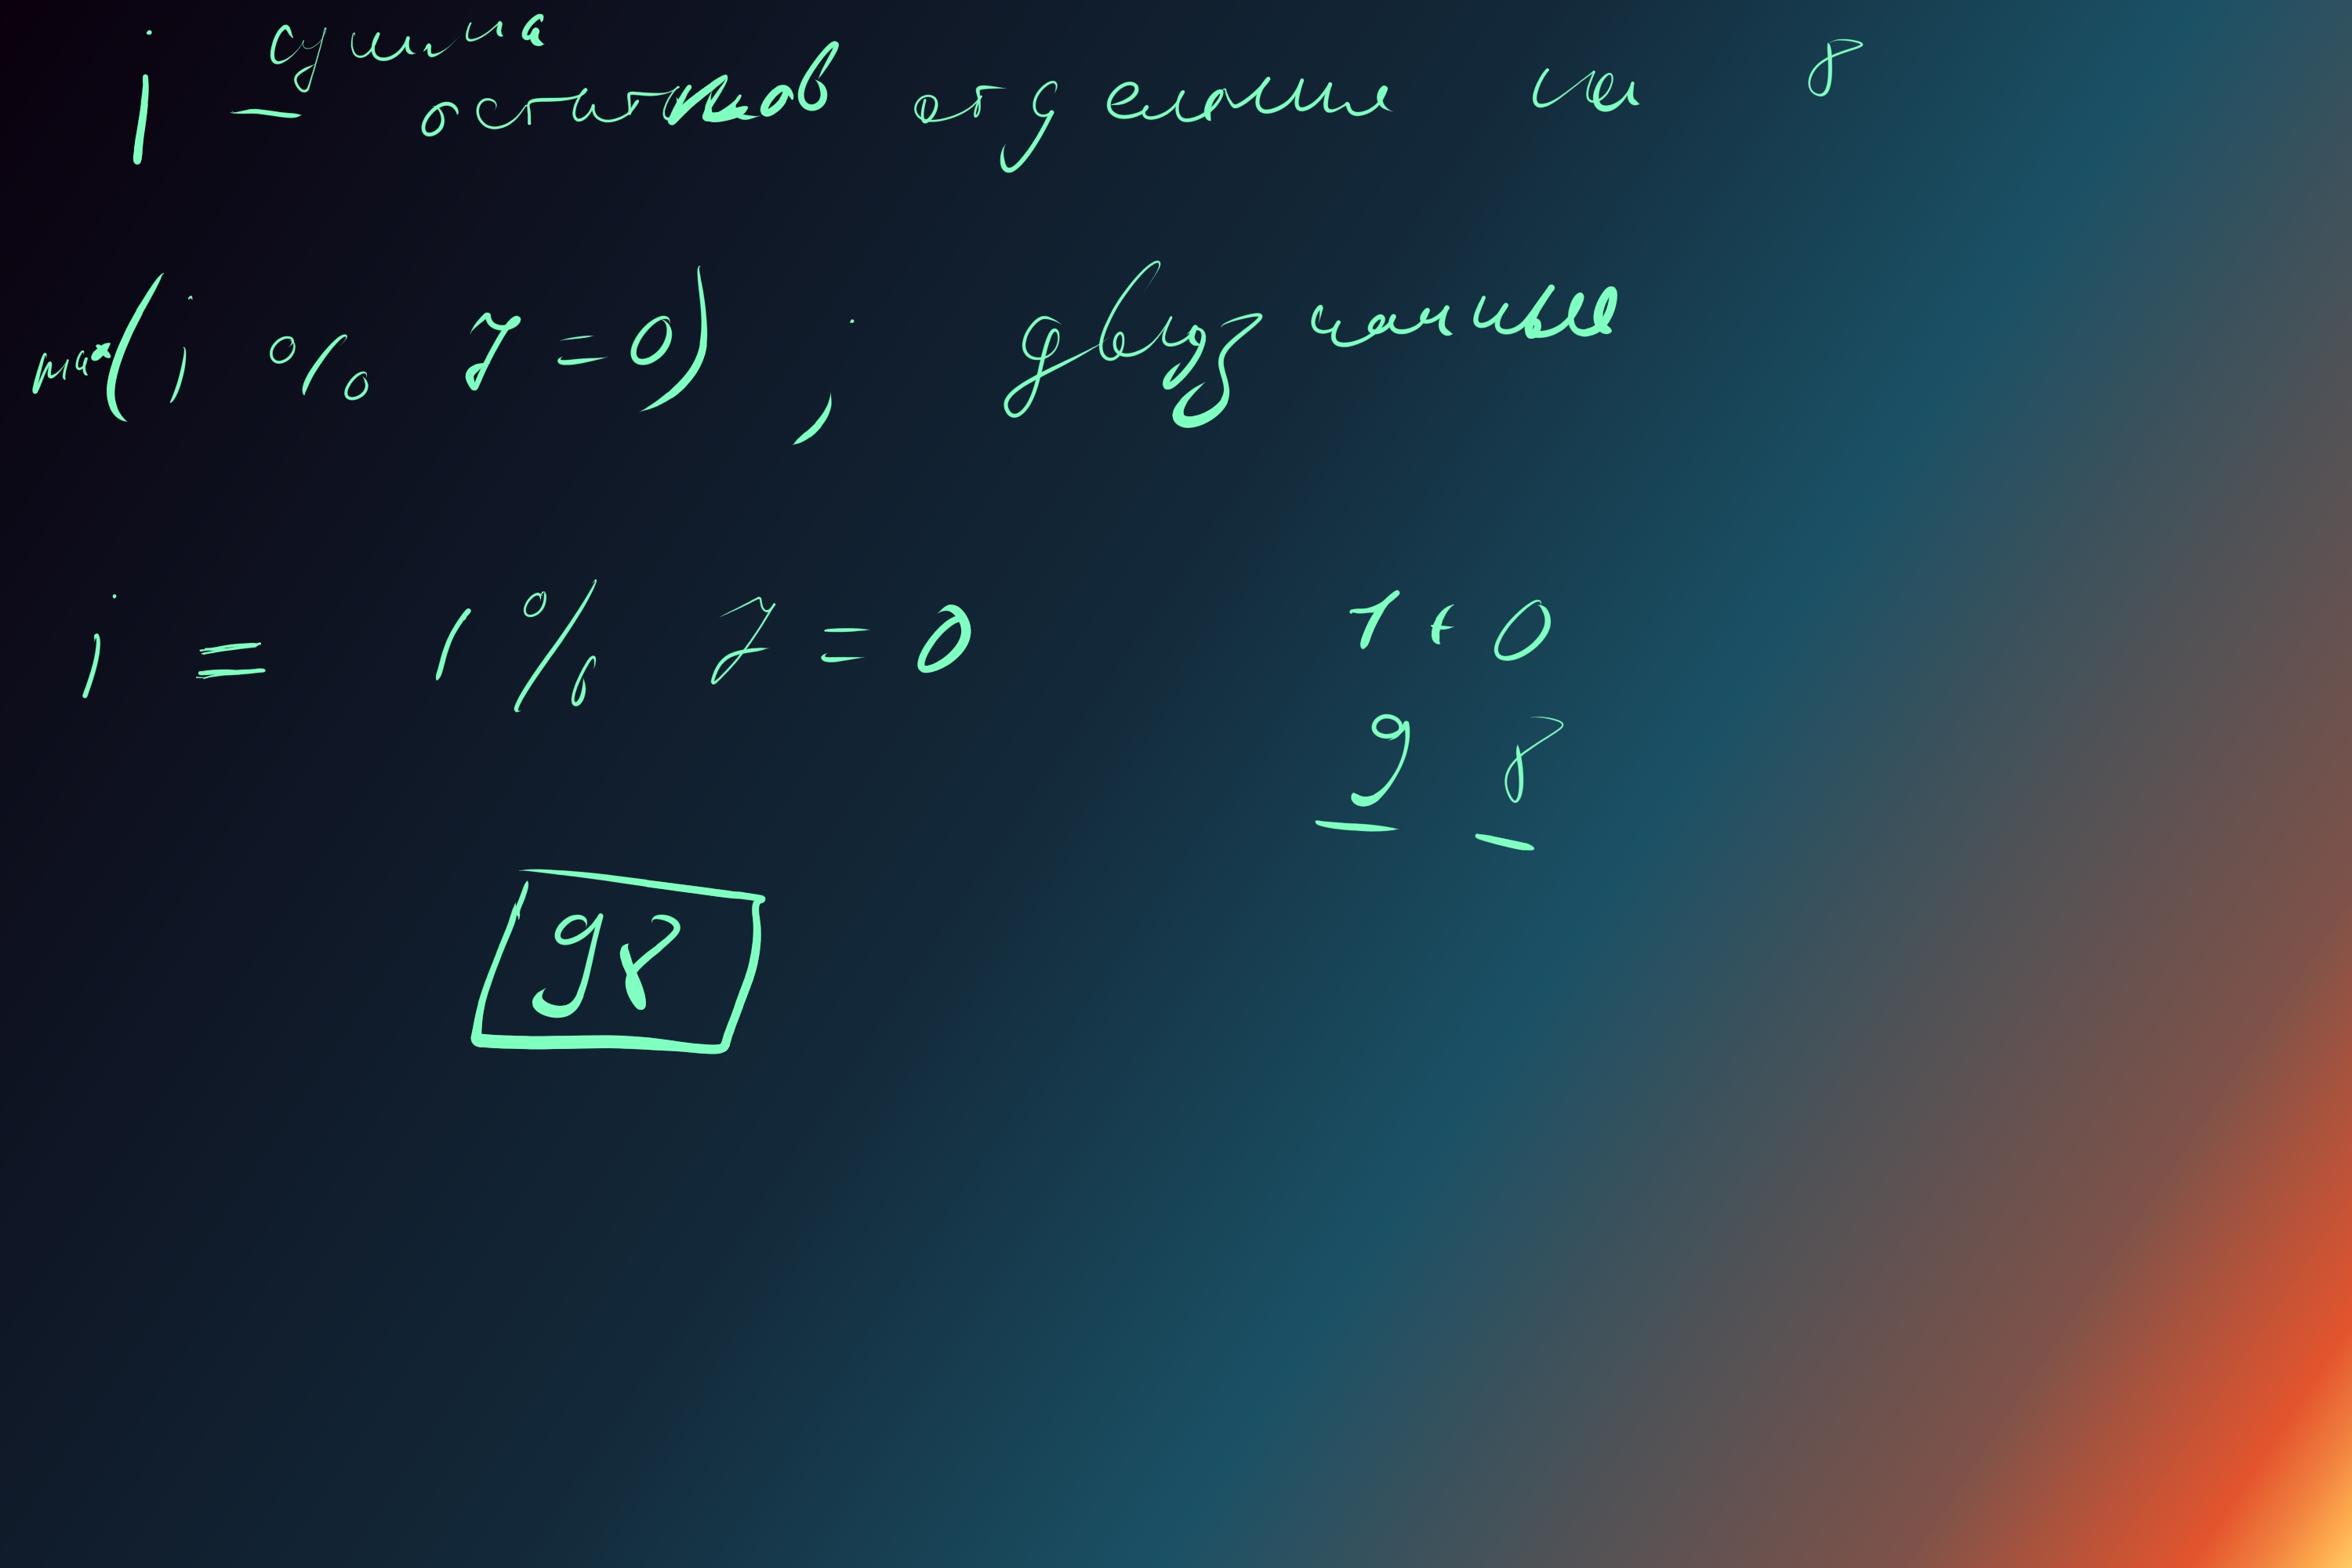 j – сумма остатков от деления на 8
max(j % 7 = 0), j двузначные
j = 1 % 7 = 0 1 + 0
9 8
98